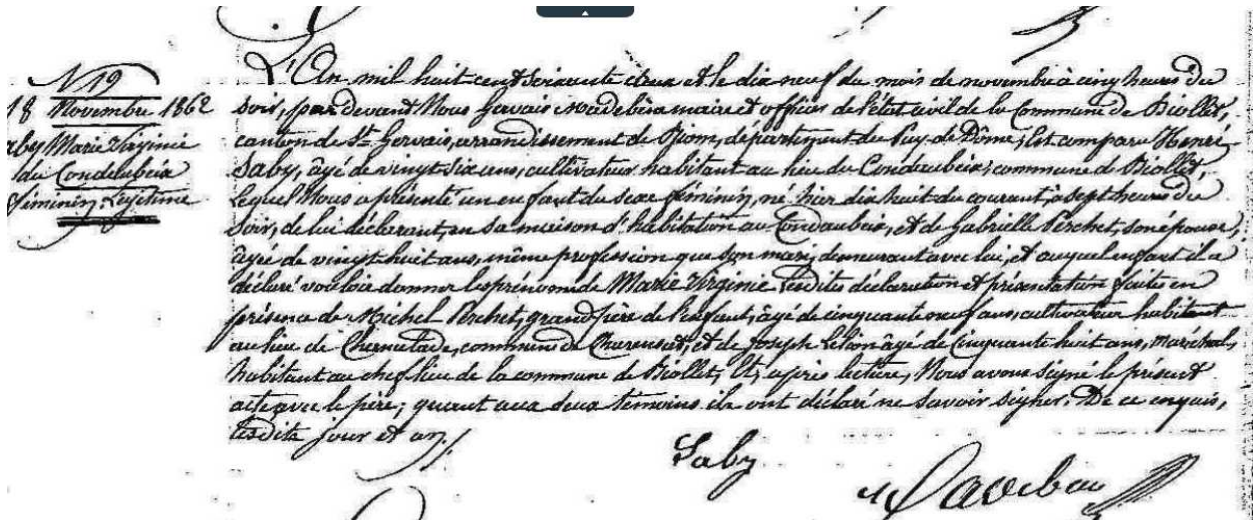 N 19
18 Novembre 1862
aby Marie Virginie
du Condeubeix
féminin Légitime
L'An mil huit cent soixante deux et le dix neuf du mois de novembre à cinq heures du
soir, par devant Nous Gervais maire et officier de l'état civil de la Commune de Biollet,
canton de St Gervais, arrondissement de Riom, département du Puy de Dôme, Est comparu Henri
Saby, âgé de vingt six ans, cultivateur habitant au lieu du Condeubeix, commune de Biollet,
Lequel Nous a présenté un enfant du sexe féminin, né hier dix huit du courant, à sept heures du
soir, de lui déclarant, en sa maison d'habitation au Condaubeix, et de Gabrielle Perchet, son épouse,
âgée de vingt huit ans, même profession que son mari, demeurant avec lui, et auquel enfant il a
déclaré vouloir donner les prénoms de Marie Virginie. Lesdites déclaration et présentation faites en
présence de Michel Perchet, grand père de l'enfant, âgé de cinquante neuf ans, cultivateur habitant
au lieu de commune de Charensat, et de Joseph âgé de Cinquante huit ans, maréchal,
habitant au chef lieu de la commune de Biollet, Et, après lecture, Nous avons signé le présent
acte avec le père; quant aux deux témoins ils ont déclaré ne savoir signer. De ce enquis,
lesdits jour et an ./.
Saby